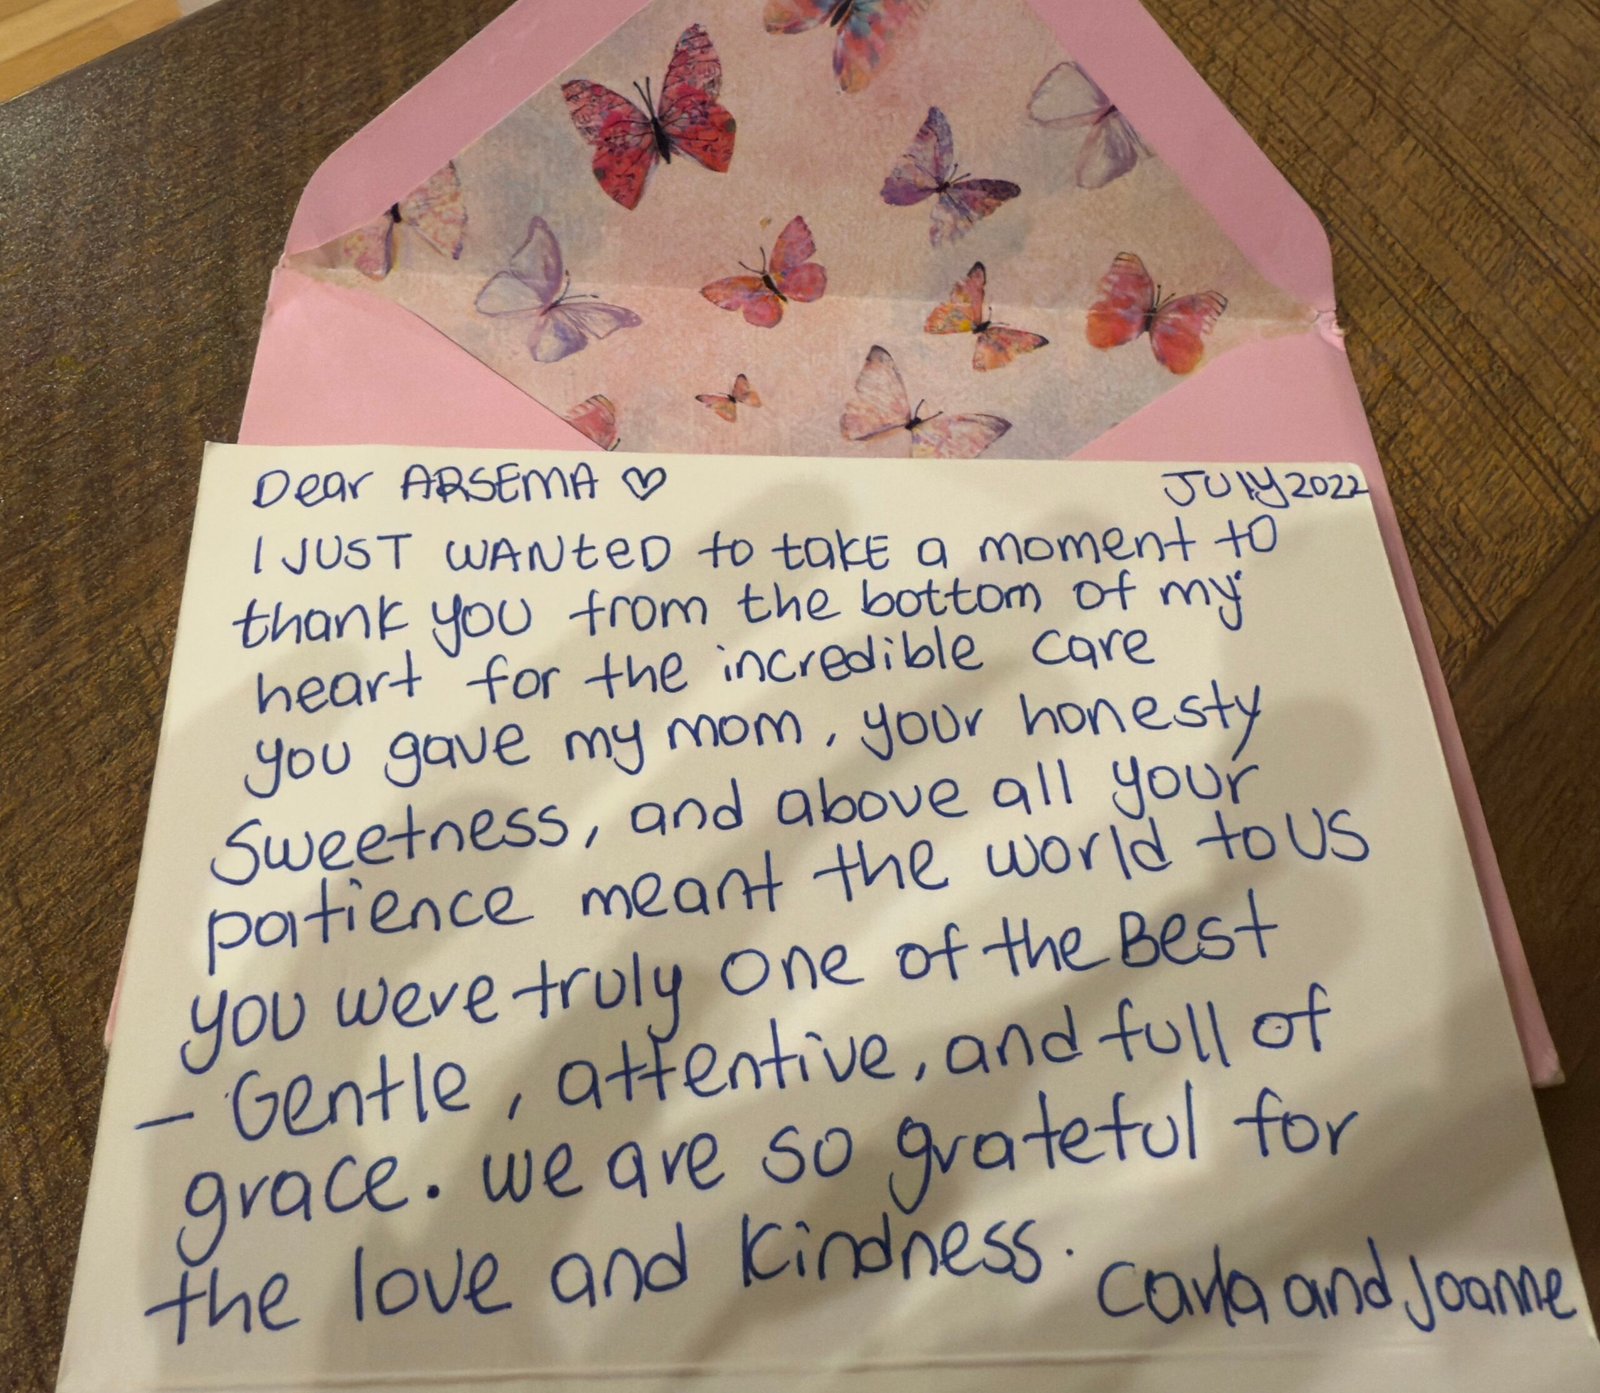 Dear ARSEMA ♡
JULY 2022
I JUST WANTeD to takE a moment to
thank you from the bottom of my
heart for the incredible care
you gave my mom, your honesty
Sweetness, and above all your
patience meant the world to US
you were truly one of the Best
– Gentle, attentive, and full of
grace. we are so grateful for
the love and kindness.
Carla and Joanne